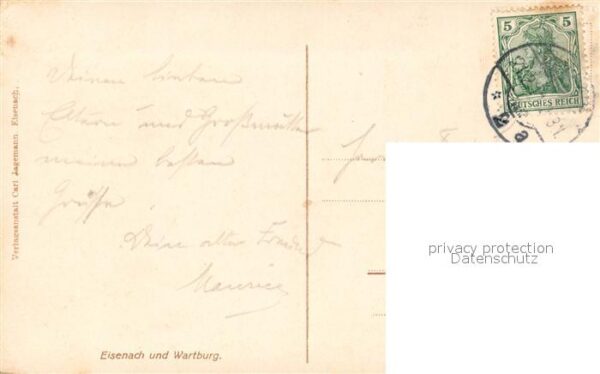 5
DEUTSCHES REICH
Verlagsanstalt Carl Jagemann Eisenach.
Deinen lieben
Eltern und Großmutter
meinen besten
Grüße.
Dein alter Freund
Maurice
privacy protection
Datenschutz
Eisenach und Wartburg.